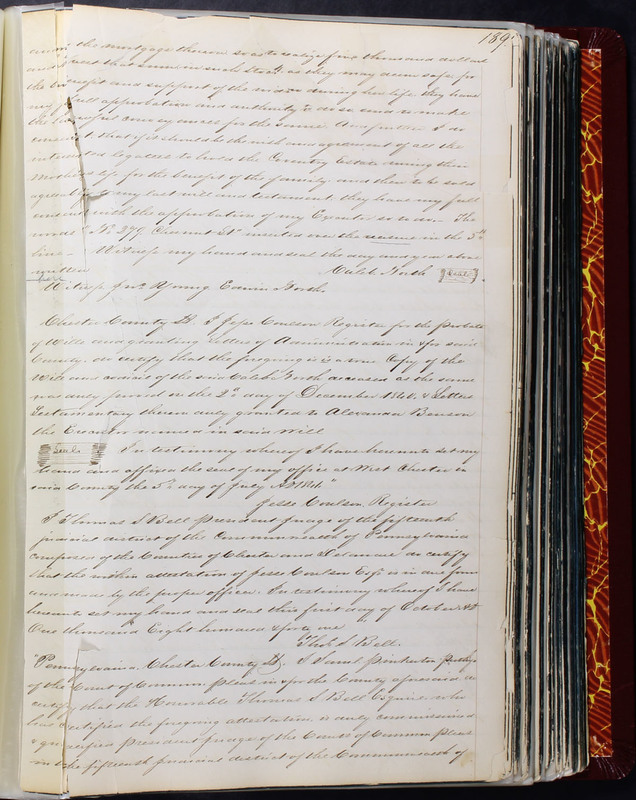 189
the mortgage thereon so as to realize five thousand dollars
and invest that sum in such Stock as they may deem safe for
the benefit and support of the widow during her life they have
my full approbation and authority to do so and to make
the transfer and conveyances for the same And further I do
that if it should be the wish and agreement of all the
interested legatees to hold the Country Estate during their
Mothers life for the benefit of the family and then to be sold
agreeably to my last will and testament they have my full
consent with the approbation of my Executor so to do The
words "No 279 Chesnut St" inserted over the erasure in the 5th
line Witness my hand and seal the day and year above
written Caleb North {Seal}
Witness Jno R Young Edwin North
Chester County Ss. I Jesse Coulson Register for the Probate
of Wills and granting letters of Administration in & for said
County do certify that the foregoing is a true Copy of the
Will and codicil of the said Caleb North deceased as the same
was duly proved on the 2d day of December 1840. & Letters
Testamentary thereon duly granted to Alexander Benson
the Executor named in said Will
Seal In testimony whereof I have hereunto set my
hand and affixed the seal of my office at West Chester in
said County the 3d day of July AD 1841"
Jesse Coulson Register
I Thomas S Bell President Judge of the fifteenth
judicial district of the Commonwealth of Pennsylvania
composed of the Counties of Chester and Delaware do certify
that the within attestation of Jesse Coulson Esqr is in due form
and made by the proper officer. In testimony whereof I have
hereunto set my hand and seal this first day of October AD
One thousand Eight hundred & forty one
Thos S Bell.
"Pennsylvania Chester County Ss. I Saml Pinkerton Prothy
of the Court of Common pleas in & for the County aforesaid do
certify that the Honorable Thomas S Bell Esquire who
has certified the foregoing attestation is duly commissioned
& qualified president Judge of the Courts of Common pleas
in the fifteenth judicial district of the Commonwealth of